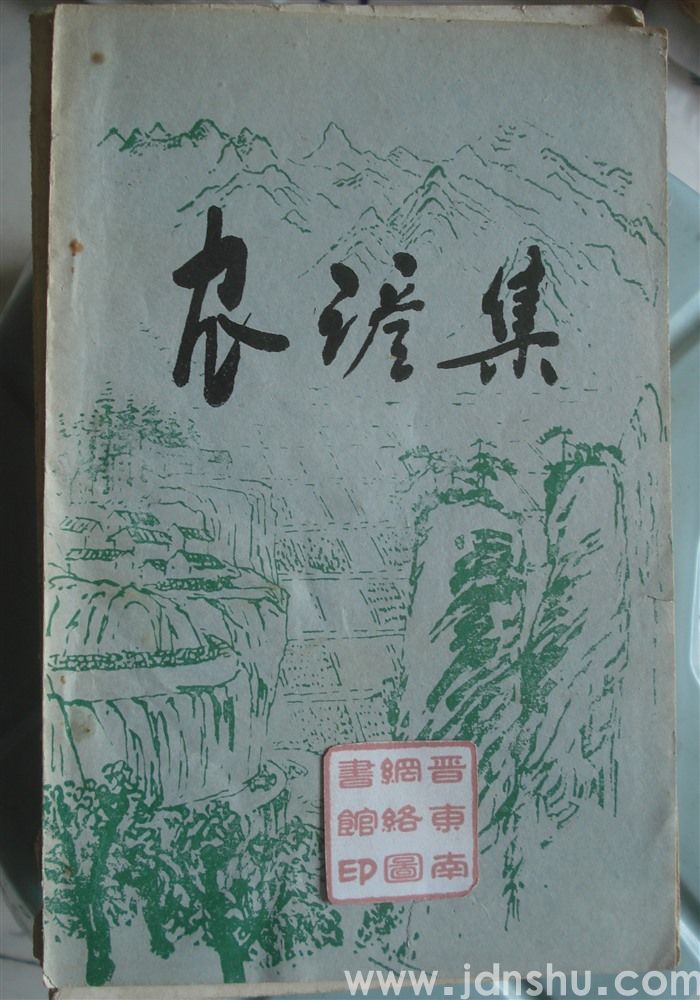 农谚集
晋東南
網絡圖
書館印
www.jdnshu.com